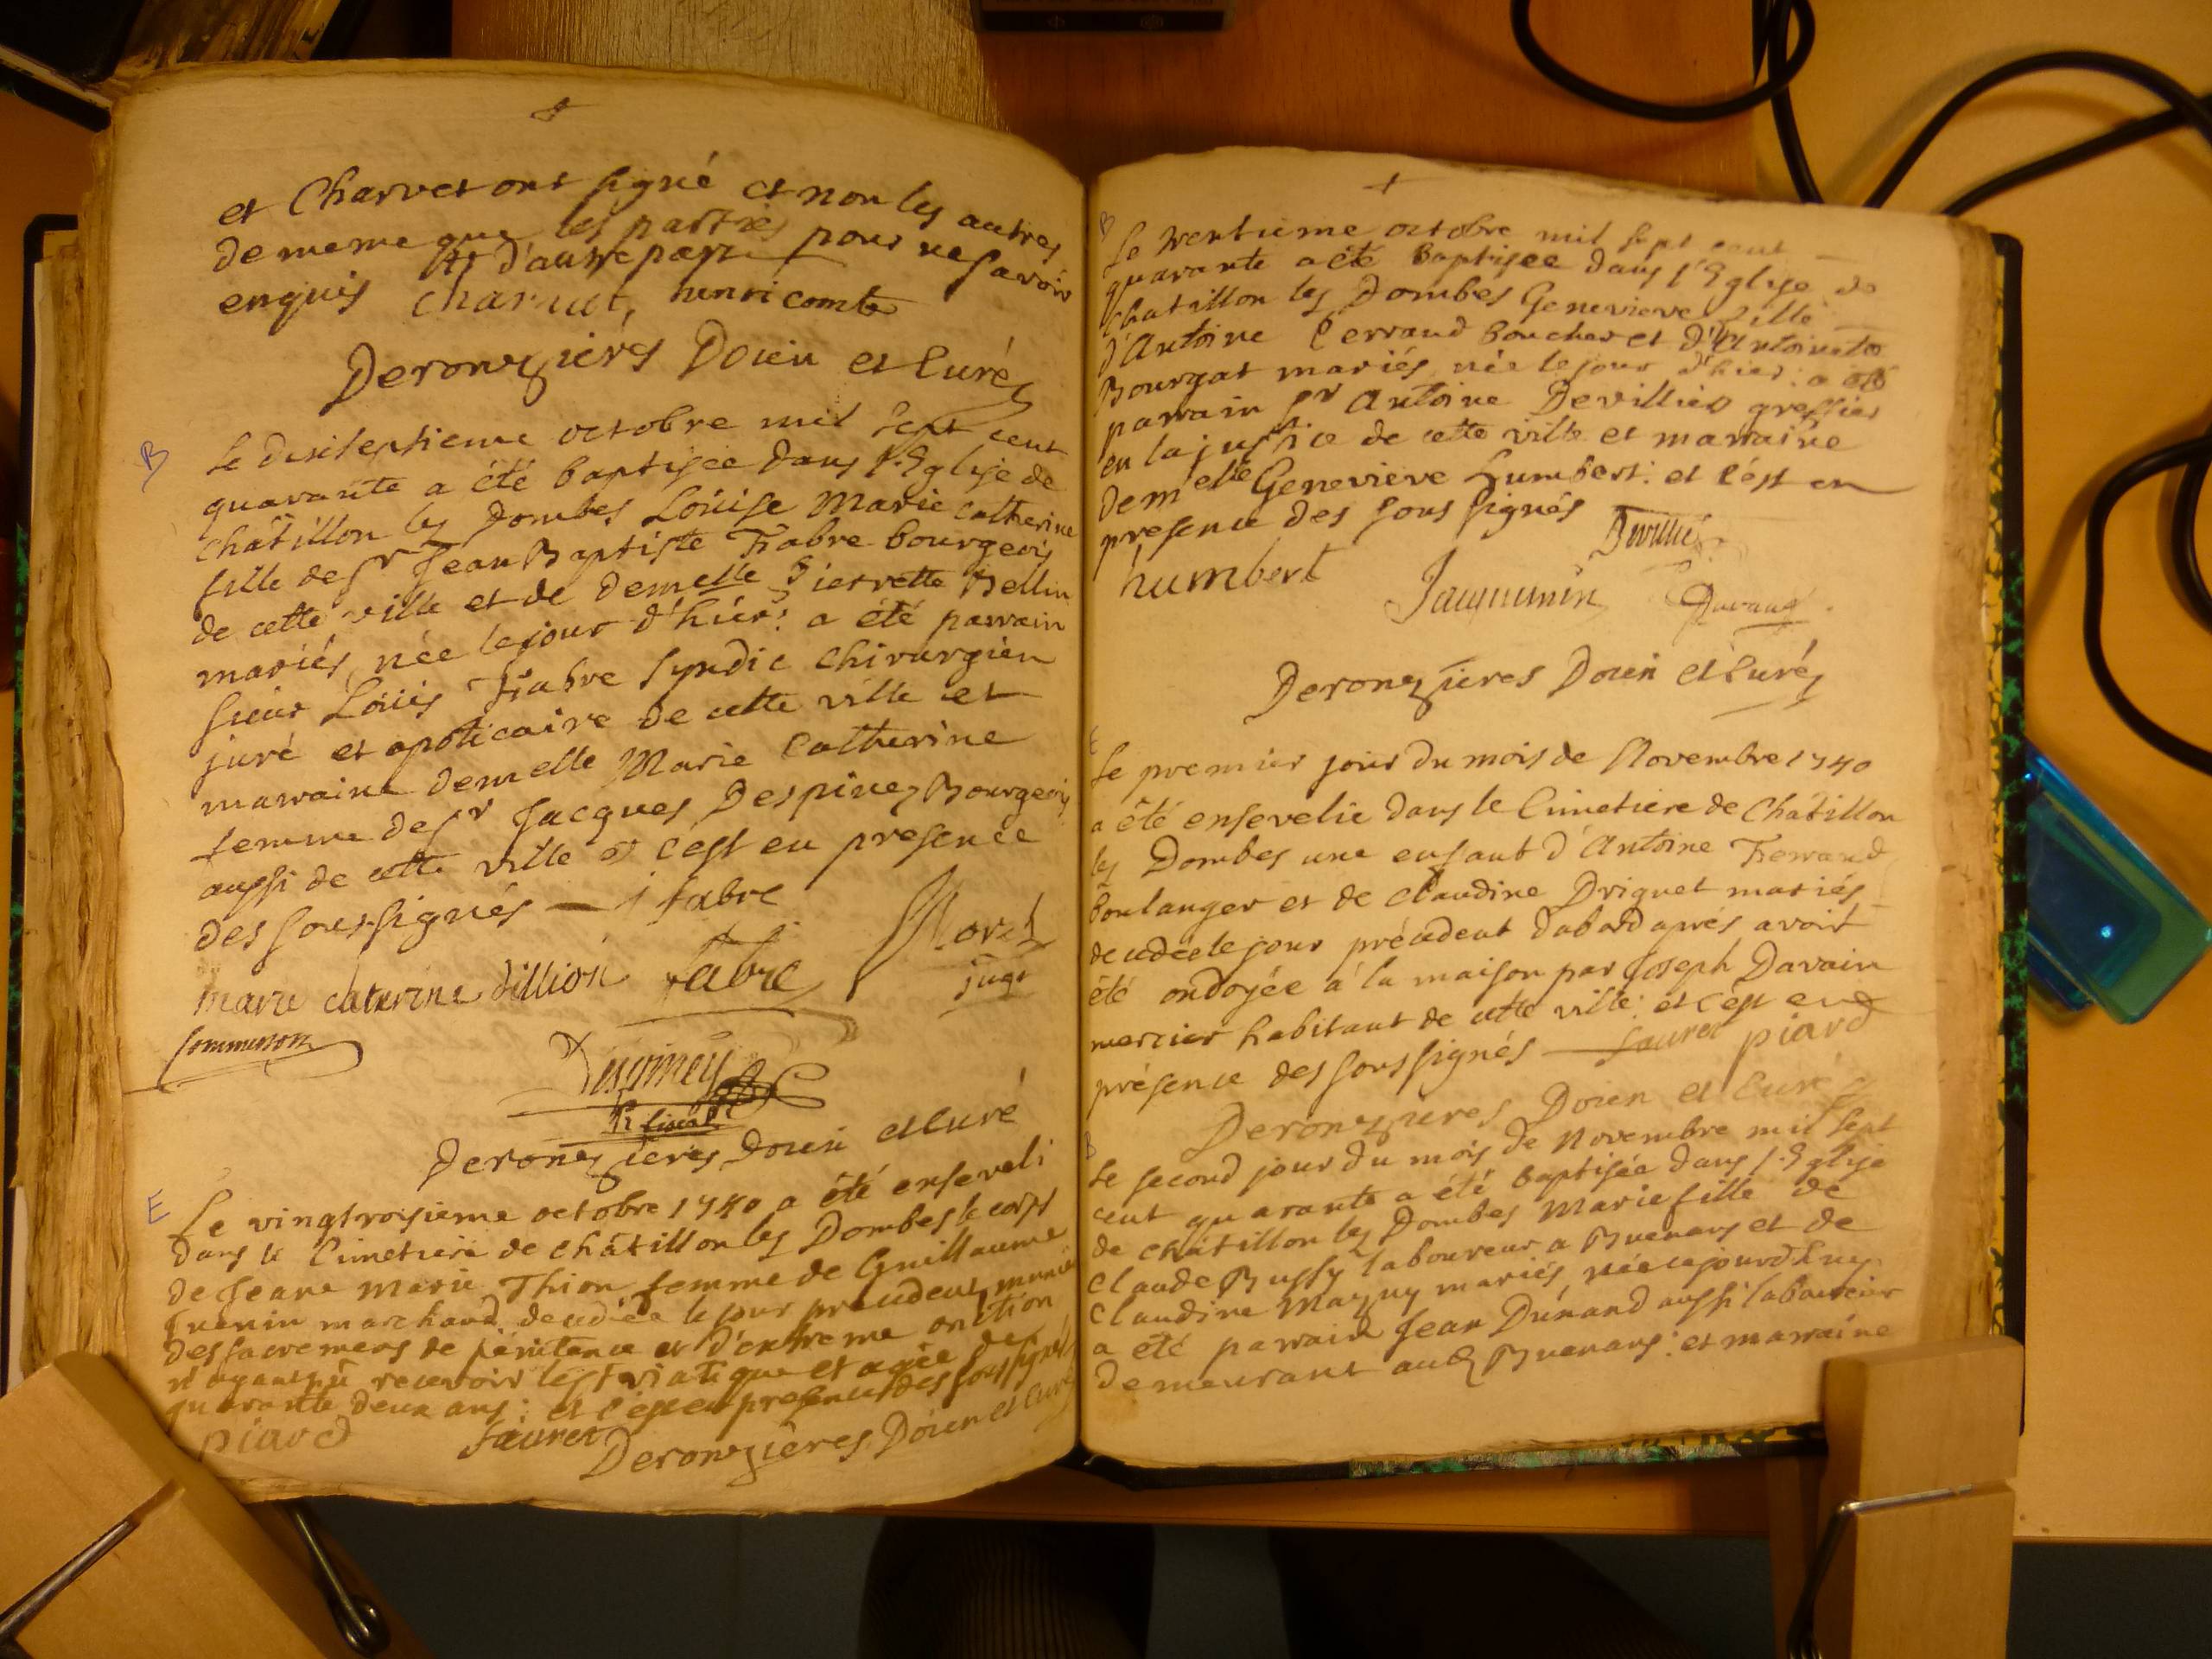 et Charvet ont signé et non les autres
de meme que les parties
et d'autre part pour ne savoir
enquis charvet, henri comte
Deronzieres Doien et Curé
B
Le dixseptieme octobre mil sept cent
quarante a été baptisée dans l'Eglise de
chatillon les Dombes Loüise Marie Catherine
fille de sr Jean Baptiste Fabre bourgeois
de cette ville et de demelle Pierrette Bellin
mariés, née le jour d'hier: a été parrain
sieur Loüis Fabre syndic chirurgien
juré et apoticaire de cette ville et
marraine demelle Marie Catherine
femme de sr Jacques Despiney Bourgeois
aussi de cette ville et c'est en présence
des soussignés — j fabre
marie caterine dillion fabre Moret
juge
Commerson
Despiney
Deronzieres Doien et Curé
E
Le vingtroisieme octobre 1740 a été enseveli
dans le Cimetiere de châtillon les Dombes le corps
de Jeane Marie Thion femme de Guillaume
Guenin marchand decedée le jour precedent munie
des sacremens de pénitence et d'extreme onction
n'ayant pû recevoir le st viatique et agée de
quarante deux ans: et c'est en presence des soussignés
piard Fauret Deronzières Doien et Curé
B
Le trentieme octobre mil sept cent
quarante a été Baptisée dans l'Eglise de
Chatillon les Dombes Genevieve fille
d'Antoine Perraud boucher et d'Antoinette
Bourgat mariés, née le jour d'hier: a été
parrain sr Antoine Devillies greffier
en la justice de cette ville et marraine
Demelle Genevieve Humbert: et c'est en
presence des sous signés Devillié
humbert Jacquemin Ravaud
Deronzieres Doien et Curé
E
Le premier jour du mois de Novembre 1740
a été ensevelie dans le Cimetiere de Châtillon
les Dombes une enfant d'Antoine Ferrand
boulanger et de claudine Driguet mariés
decedée le jour précédent dabord aprés avoir
été ondoyée à la maison par Joseph Davain
mercier habitant de cette ville: et c'est en
présence des sous signés — Fauret piard
Deronzieres Doien et Curé
B
Le second jour du mois de Novembre mil sept
cent quarante a été baptisée dans l'Eglise
de chatillon les Dombes Marie fille de
claude Bussy laboureur a Buenans et de
claudine Mazuy mariés née cejourd'huy
a été parrain Jean Dunand aussi laboureur
demeurant aud Buenans: et marraine